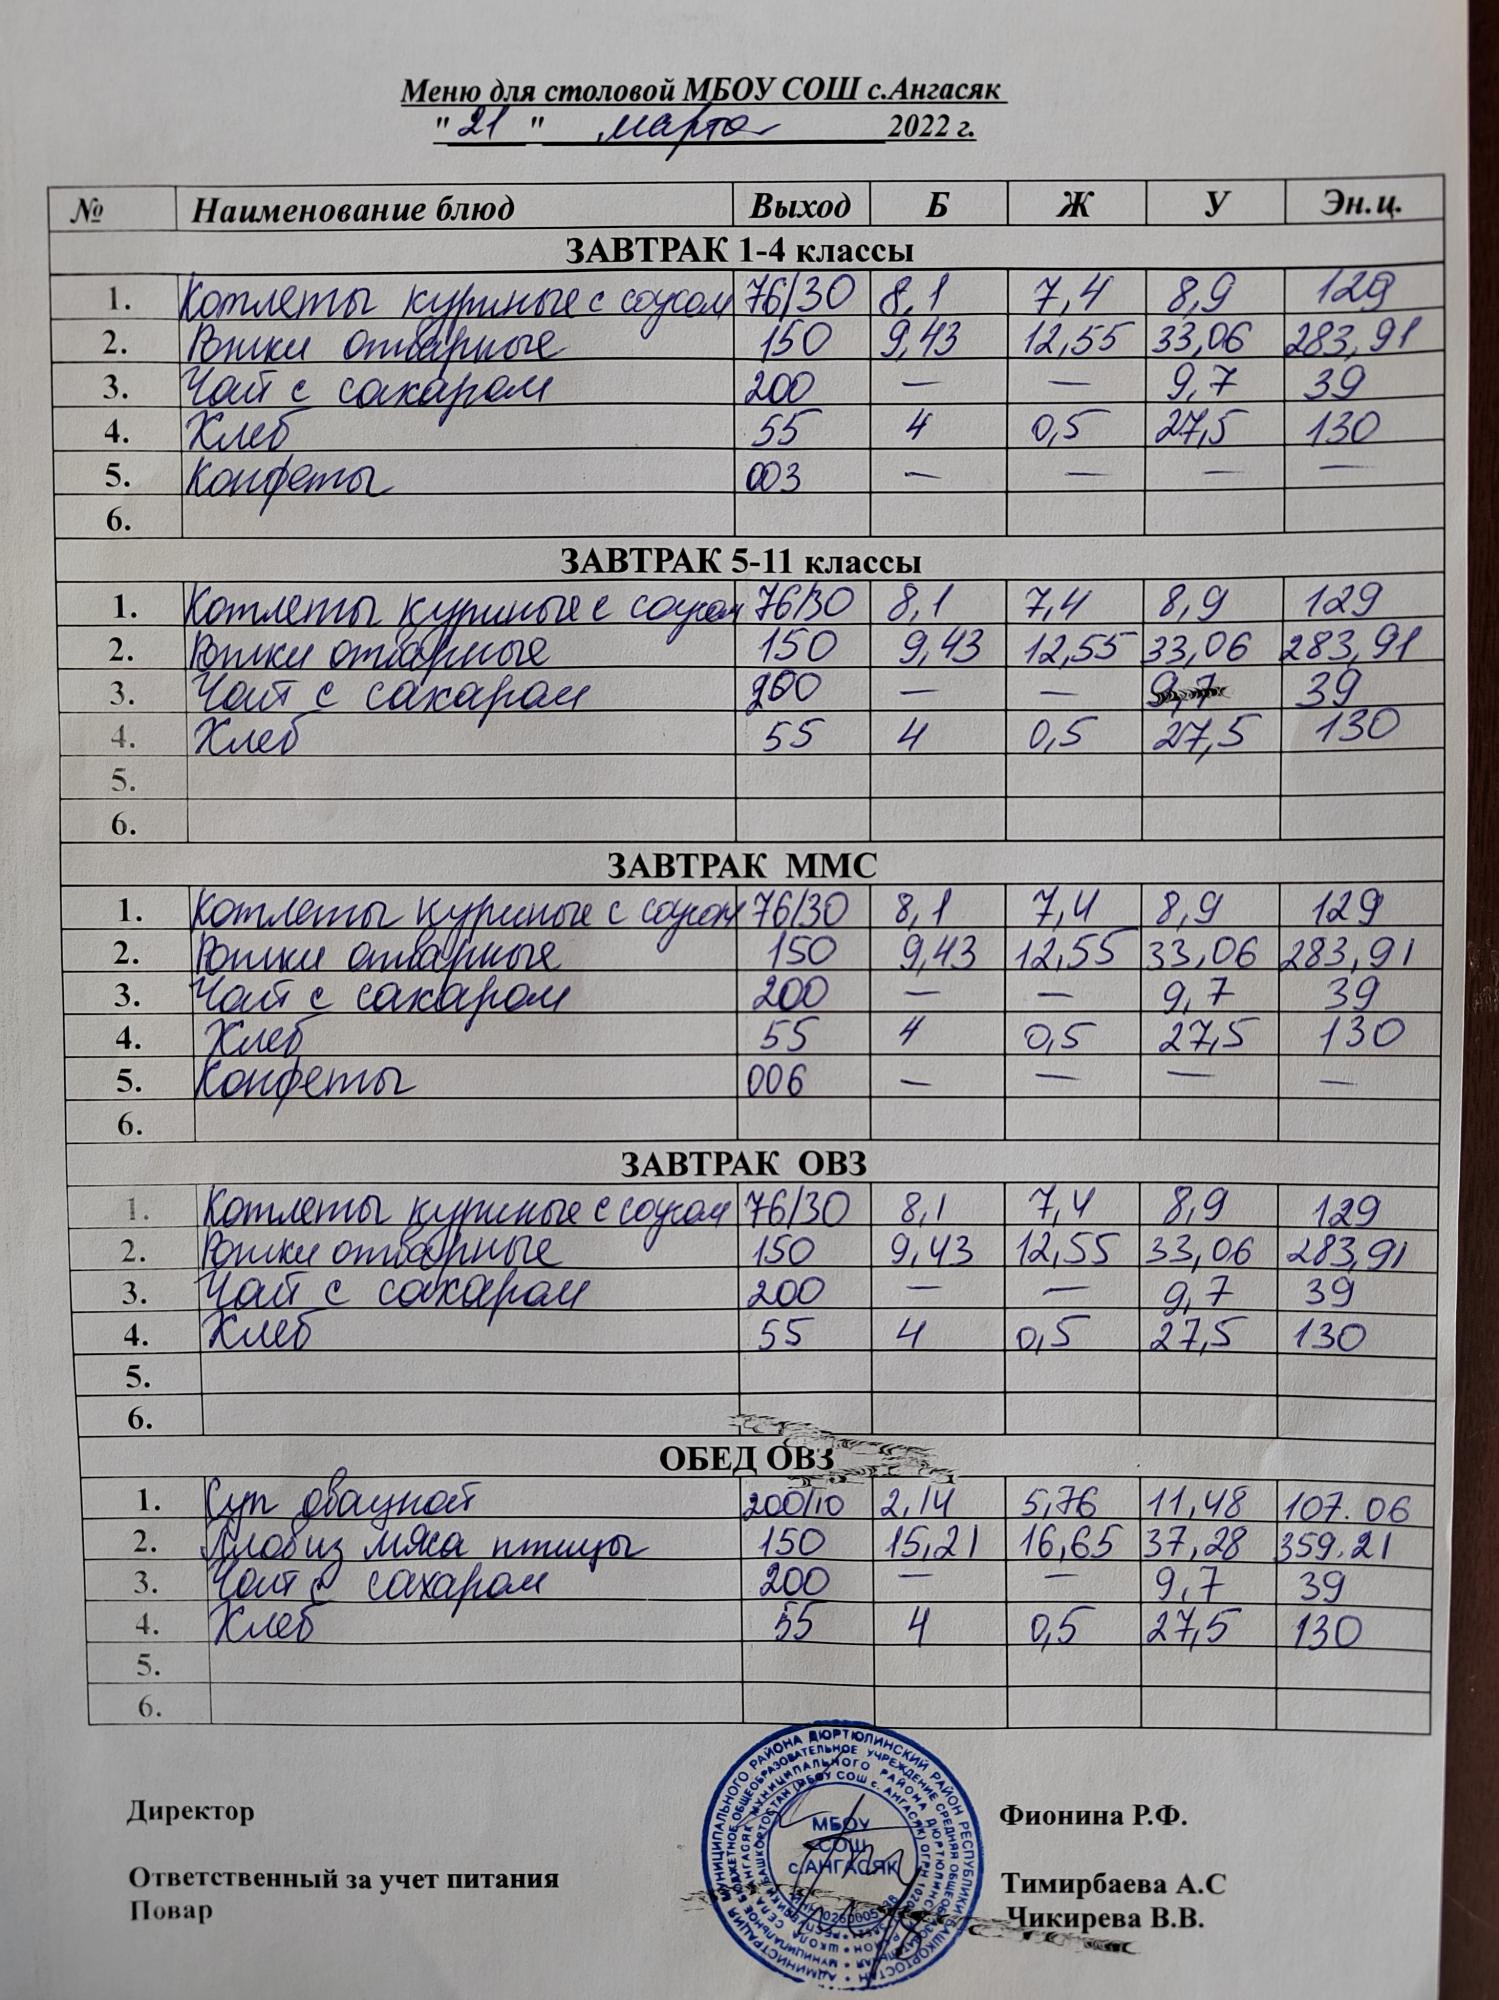 Меню для столовой МБОУ СОШ с.Ангасяк
"21" марта 2022 г.
№ Наименование блюд Выход Б Ж У Эн.ц.
ЗАВТРАК 1-4 классы
1. Котлеты куриные с соусом 76/30 8,1 7,4 8,9 129
2. Рожки отварные 150 9,43 12,55 33,06 283,91
3. Чай с сахаром 200 — — 9,7 39
4. Хлеб 55 4 0,5 27,5 130
5. Конфеты 003 — — — —
6.
ЗАВТРАК 5-11 классы
1. Котлеты куриные с соусом 76/30 8,1 7,4 8,9 129
2. Рожки отварные 150 9,43 12,55 33,06 283,91
3. Чай с сахаром 200 — — 9,7 39
4. Хлеб 55 4 0,5 27,5 130
5.
6.
ЗАВТРАК ММС
1. Котлеты куриные с соусом 76/30 8,1 7,4 8,9 129
2. Рожки отварные 150 9,43 12,55 33,06 283,91
3. Чай с сахаром 200 — — 9,7 39
4. Хлеб 55 4 0,5 27,5 130
5. Конфеты 006 — — — —
6.
ЗАВТРАК ОВЗ
1. Котлеты куриные с соусом 76/30 8,1 7,4 8,9 129
2. Рожки отварные 150 9,43 12,55 33,06 283,91
3. Чай с сахаром 200 — — 9,7 39
4. Хлеб 55 4 0,5 27,5 130
5.
6.
ОБЕД ОВЗ
1. Суп 200/10 2,14 5,76 11,48 107.06
2. Плов из мяса птицы 150 15,21 16,65 37,28 359.21
3. Чай с сахаром 200 — — 9,7 39
4. Хлеб 55 4 0,5 27,5 130
5.
6.
Директор Фионина Р.Ф.
МБОУ
СОШ
с.АНГАСЯК
Ответственный за учет питания Тимирбаева А.С
Повар Чикирева В.В.